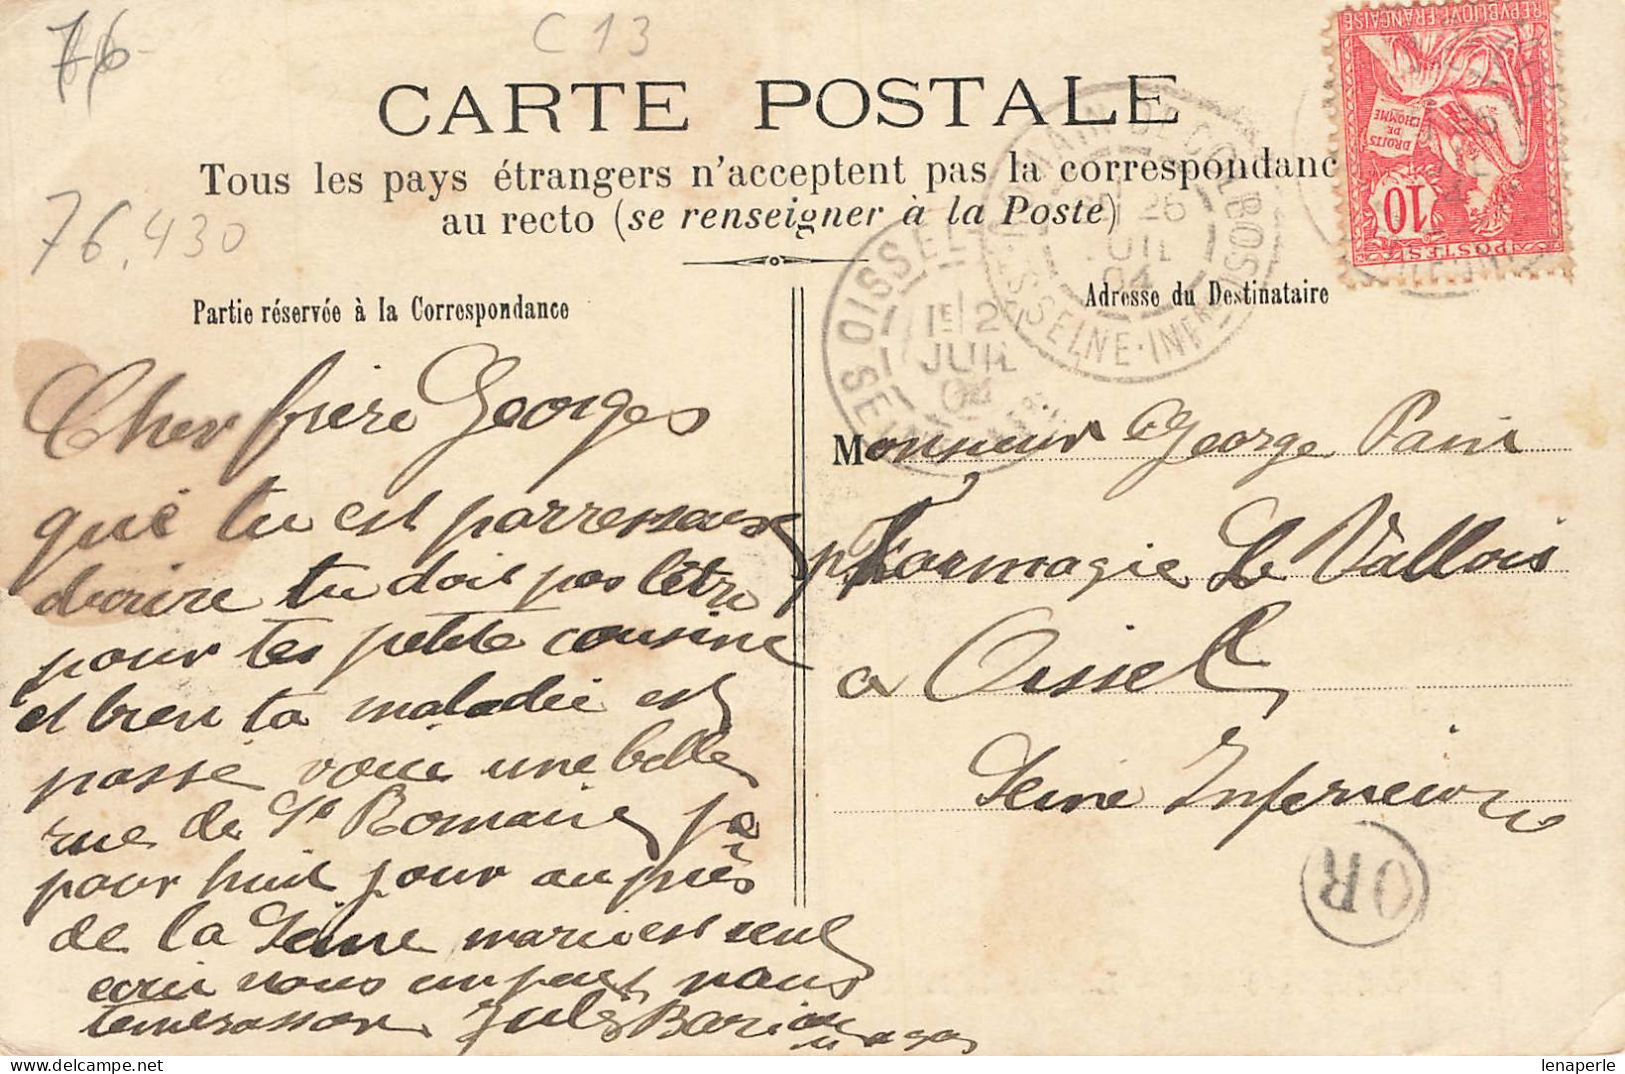 76
C 13
76.430
CARTE POSTALE
Tous les pays étrangers n'acceptent pas la correspondanc
au recto (se renseigner à la Poste)
REPUBLIQUE FRANÇAISE
DROITS DE L'HOMME
10
POSTES
OISSEL
1E/2
JUIL
04
SEINE-INFRE
26
JUIL
04
Partie réservée à la Correspondance
Adresse du Destinataire
Cher frère Georges
que tu est parressaux
decrire tu doit pas lêtre
pour tes petite cousine
et bien ta maladie est
passé voici une belle
rue de St Romain je
pour huit jour au près
de la Seine marie est seul
ecrit nous un peut nous
temerasson Jules Bari
Monsieur George Paris
pharmagie Le Vallois
a Oissel
Seine Inferieur
OR
lenaperle